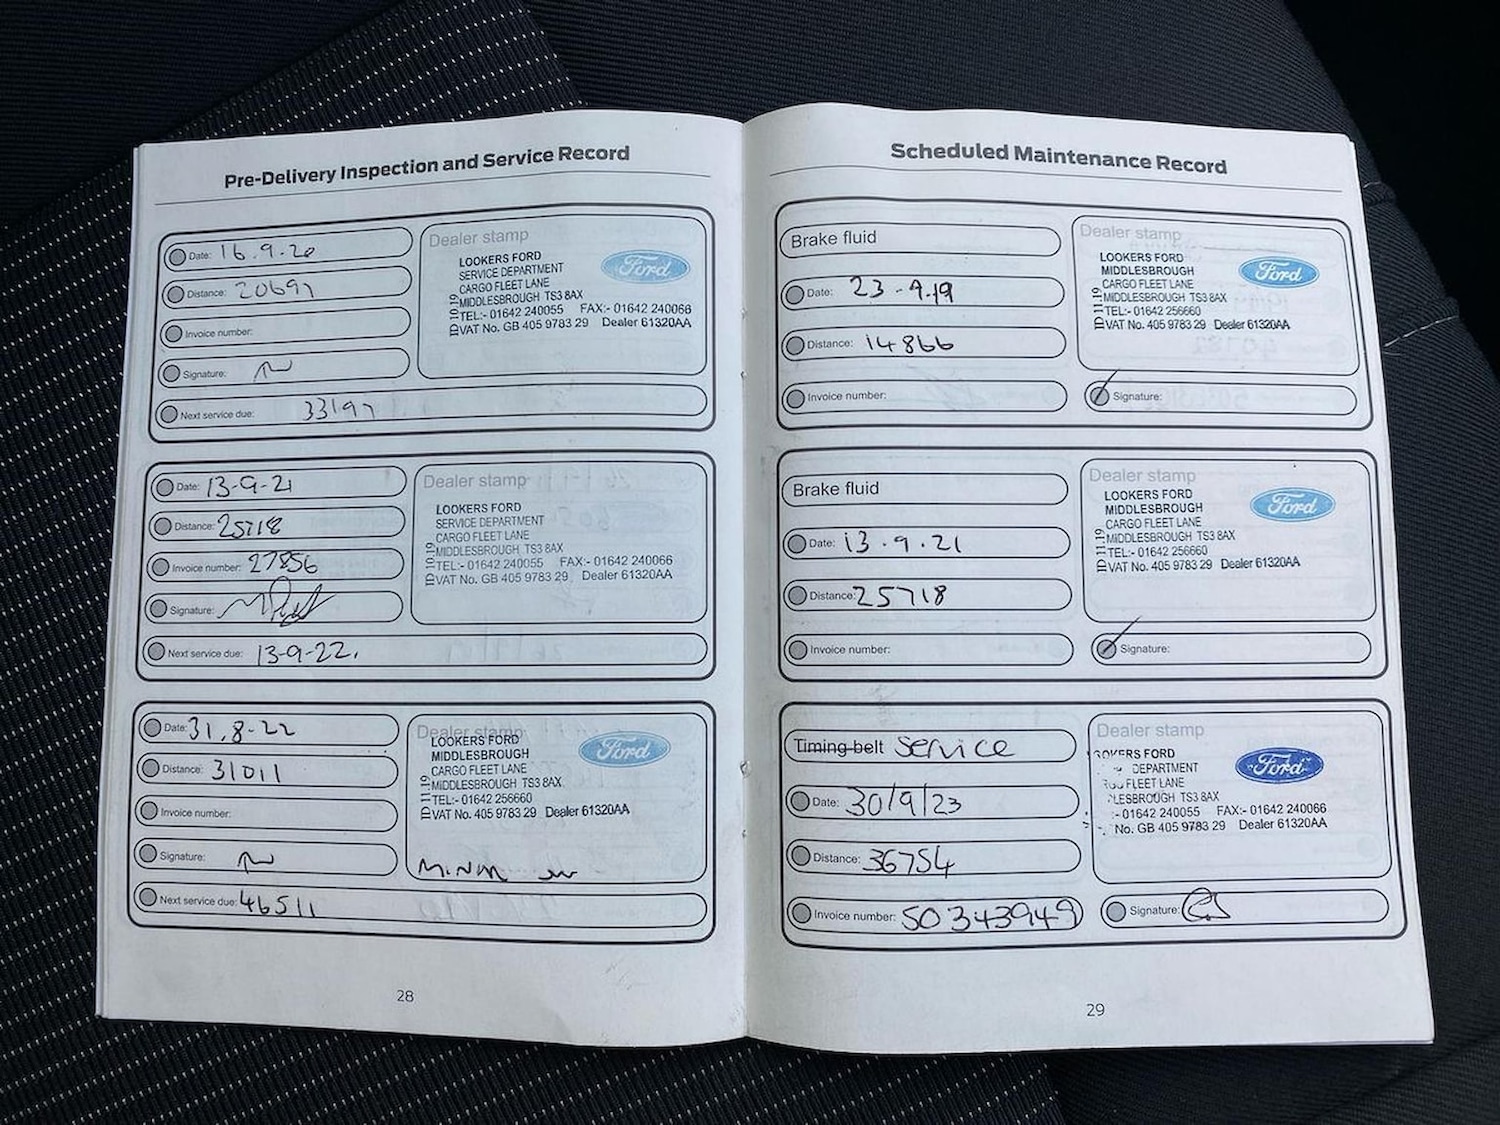 Pre-Delivery Inspection and Service Record
Date: 16.9.20
Distance: 20697
Invoice number:
Signature:
Next service due: 33197
Dealer stamp
LOOKERS FORD
SERVICE DEPARTMENT
CARGO FLEET LANE
MIDDLESBROUGH TS3 8AX
TEL:- 01642 240055 FAX:- 01642 240066
VAT No. GB 405 9783 29 Dealer 61320AA
ID 10.19
Ford
Date: 13-9-21
Distance: 25718
Invoice number: 27856
Signature:
Next service due: 13-9-22.
Dealer stamp
LOOKERS FORD
SERVICE DEPARTMENT
CARGO FLEET LANE
MIDDLESBROUGH TS3 8AX
TEL:- 01642 240055 FAX:- 01642 240066
VAT No. GB 405 9783 29 Dealer 61320AA
ID 10.19
Date: 31.8-22
Distance: 31011
Invoice number:
Signature:
Next service due: 46511
Dealer stamp
LOOKERS FORD
MIDDLESBROUGH
CARGO FLEET LANE
MIDDLESBROUGH TS3 8AX
TEL:- 01642 256660
VAT No. 405 9783 29 Dealer 61320AA
ID 11.19
Ford
28
Scheduled Maintenance Record
Brake fluid
Date: 23-9.19
Distance: 14866
Invoice number:
Dealer stamp
LOOKERS FORD
MIDDLESBROUGH
CARGO FLEET LANE
MIDDLESBROUGH TS3 8AX
TEL:- 01642 256660
VAT No. 405 9783 29 Dealer 61320AA
ID 11.19
Ford
Signature:
Brake fluid
Date: 13.9.21
Distance: 25718
Invoice number:
Dealer stamp
LOOKERS FORD
MIDDLESBROUGH
CARGO FLEET LANE
MIDDLESBROUGH TS3 8AX
TEL:- 01642 256660
VAT No. 405 9783 29 Dealer 61320AA
ID 11.19
Ford
Signature:
Timing belt Service
Date: 30/9/23
Distance: 36754
Invoice number: 50343949
Dealer stamp
OOKERS FORD
DEPARTMENT
FLEET LANE
LESBROUGH TS3 8AX
:- 01642 240055 FAX:- 01642 240066
No. GB 405 9783 29 Dealer 61320AA
Ford
Signature:
29